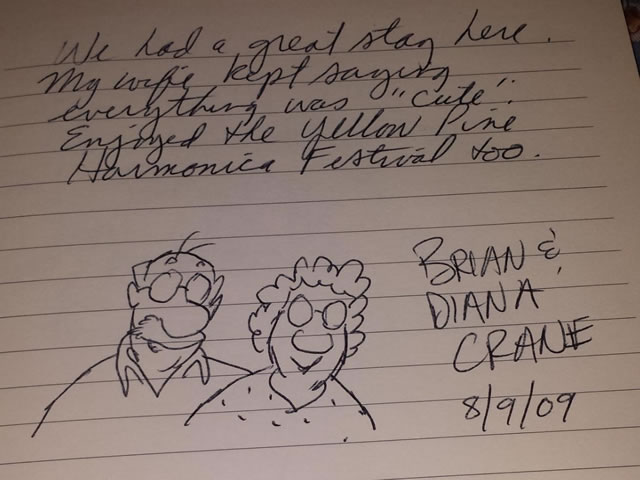 We had a great stay here.
My wife kept saying
everything was "cute".
Enjoyed the Yellow Pine
Harmonica Festival too.
BRIAN &
DIANA
CRANE
8/9/09